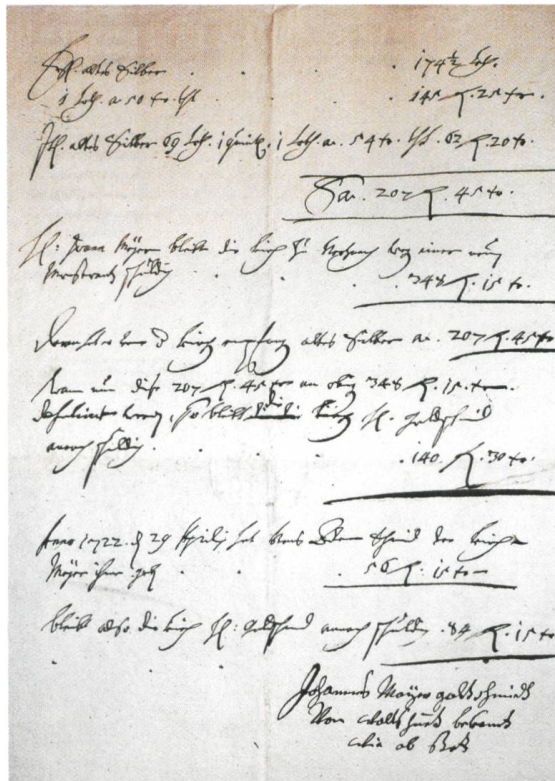 altes Silber . . . 174½ Loth.
1 Loth. a 50 xr. thut 145 f. 25 xr.
It. altes Silber 69 Loth. 1 quintl. 1 Loth a. 54 xr. thut. 62 f. 20 xr.
Sa. 207 f. 45 xr.
H: Mayer bleibt die Kirch zu wegen einer neuen
Monstrantz schuldig . . . 348 f. 15 xr.
von d Kirch altes Silber a. 207 f. 45 xr
Wan nun dise 207 f. 45 xr an obigen 348 f. 15 xr.
werden, so bleibt die Kirch H. goldschmid
annoch schuldig . 140. f. 30 xr.
Anno 1722. d 29 Aprilis hat der Kirchen
Meyer ihm geben . . 56 f. 15 xr
bleibt also die Kirch H: goldschmid annoch schuldig . 84 f. 15 xr
Johannes Mayer goldtschmidt
Von Waltshuet bekendt
wie ob stet